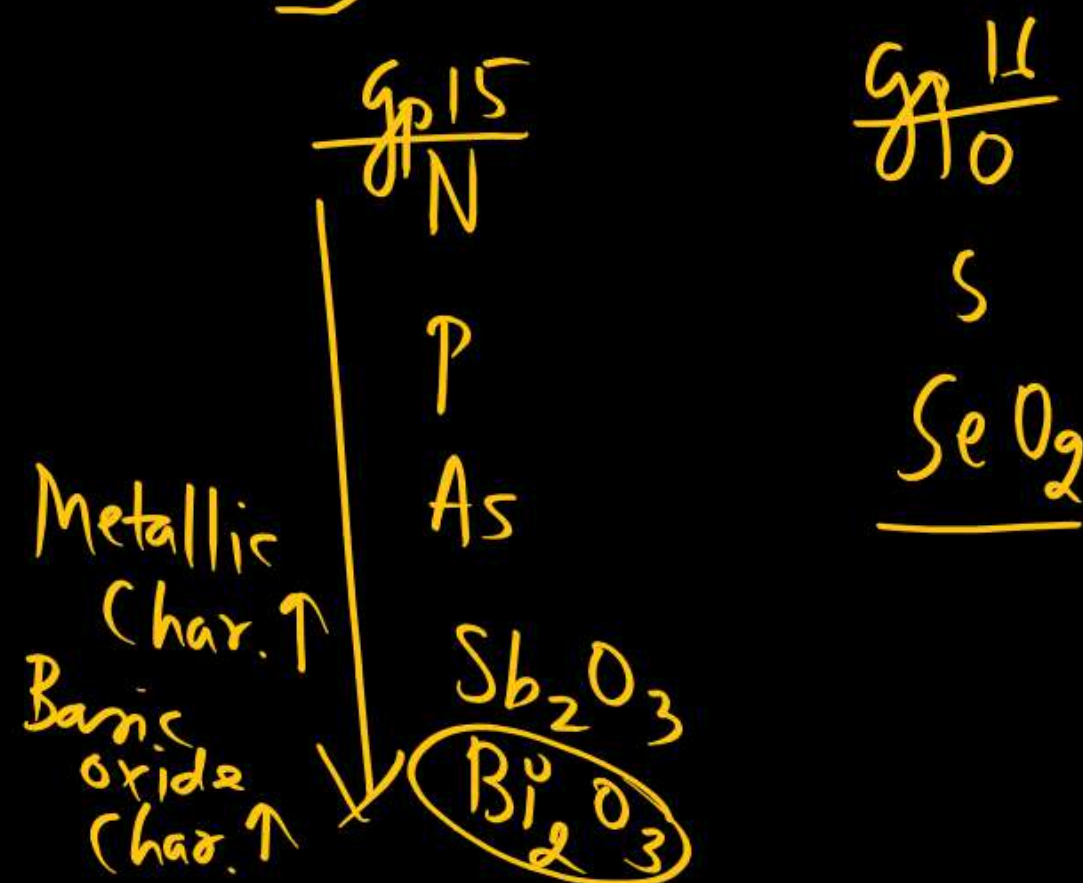 Gp 15
N
P
As
Sb2O3
Bi2O3
Metallic
Char. ↑
Basic
oxide
Char. ↑
Gp 16
O
S
SeO2